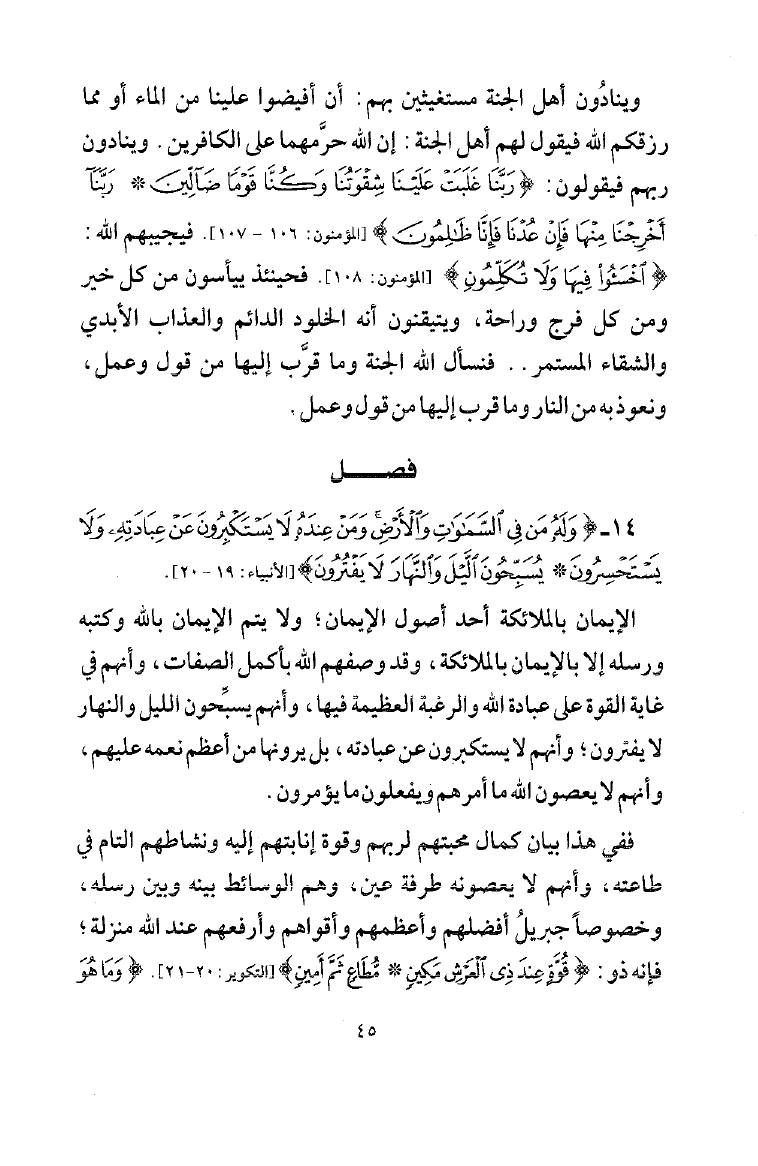 وينادُون أهل الجنة مستغيثين بهم: أن أفيضوا علينا من الماء أو مما
رزقكم الله فيقول لهم أهل الجنة: إن الله حرَّمهما على الكافرين. وينادون
ربهم فيقولون: ﴿رَبَّنَا غَلَبَتْ عَلَيْنَا شِقْوَتُنَا وَكُنَّا قَوْمًا ضَآلِّينَ * رَبَّنَآ
أَخْرِجْنَا مِنْهَا فَإِنْ عُدْنَا فَإِنَّا ظَـٰلِمُونَ﴾ [المؤمنون: ١٠٦ – ١٠٧]. فيجيبهم الله:
﴿ٱخْسَـُٔوا۟ فِيهَا وَلَا تُكَلِّمُونِ﴾ [المؤمنون: ١٠٨]. فحينئذ ييأسون من كل خير
ومن كل فرج وراحة، ويتيقنون أنه الخلود الدائم والعذاب الأبدي
والشقاء المستمر.. فنسأل الله الجنة وما قرَّب إليها من قول وعمل،
ونعوذ به من النار وما قرب إليها من قول وعمل.
فصـــــل
١٤ـ ﴿وَلَهُۥ مَن فِى ٱلسَّمَـٰوَٰتِ وَٱلْأَرْضِ ۚ وَمَنْ عِندَهُۥ لَا يَسْتَكْبِرُونَ عَنْ عِبَادَتِهِۦ وَلَا
يَسْتَحْسِرُونَ * يُسَبِّحُونَ ٱلَّيْلَ وَٱلنَّهَارَ لَا يَفْتُرُونَ﴾ [الأنبياء: ١٩ – ٢٠].
الإيمان بالملائكة أحد أصول الإيمان؛ ولا يتم الإيمان بالله وكتبه
ورسله إلا بالإيمان بالملائكة، وقد وصفهم الله بأكمل الصفات، وأنهم في
غاية القوة على عبادة الله والرغبة العظيمة فيها، وأنهم يسبِّحون الليل والنهار
لا يفترون؛ وأنهم لا يستكبرون عن عبادته، بل يرونها من أعظم نعمه عليهم،
وأنهم لا يعصون الله ما أمرهم ويفعلون ما يؤمرون.
ففي هذا بيان كمال محبتهم لربهم وقوة إنابتهم إليه ونشاطهم التام في
طاعته، وأنهم لا يعصونه طرفة عين، وهم الوسائط بينه وبين رسله،
وخصوصاً جبريلُ أفضلهم وأعظمهم وأقواهم وأرفعهم عند الله منزلة؛
فإنه ذو: ﴿قُوَّةٍ عِندَ ذِى ٱلْعَرْشِ مَكِينٍ * مُّطَاعٍ ثَمَّ أَمِينٍ﴾ [التكوير: ٢٠-٢١]. ﴿وَمَا هُوَ
٤٥